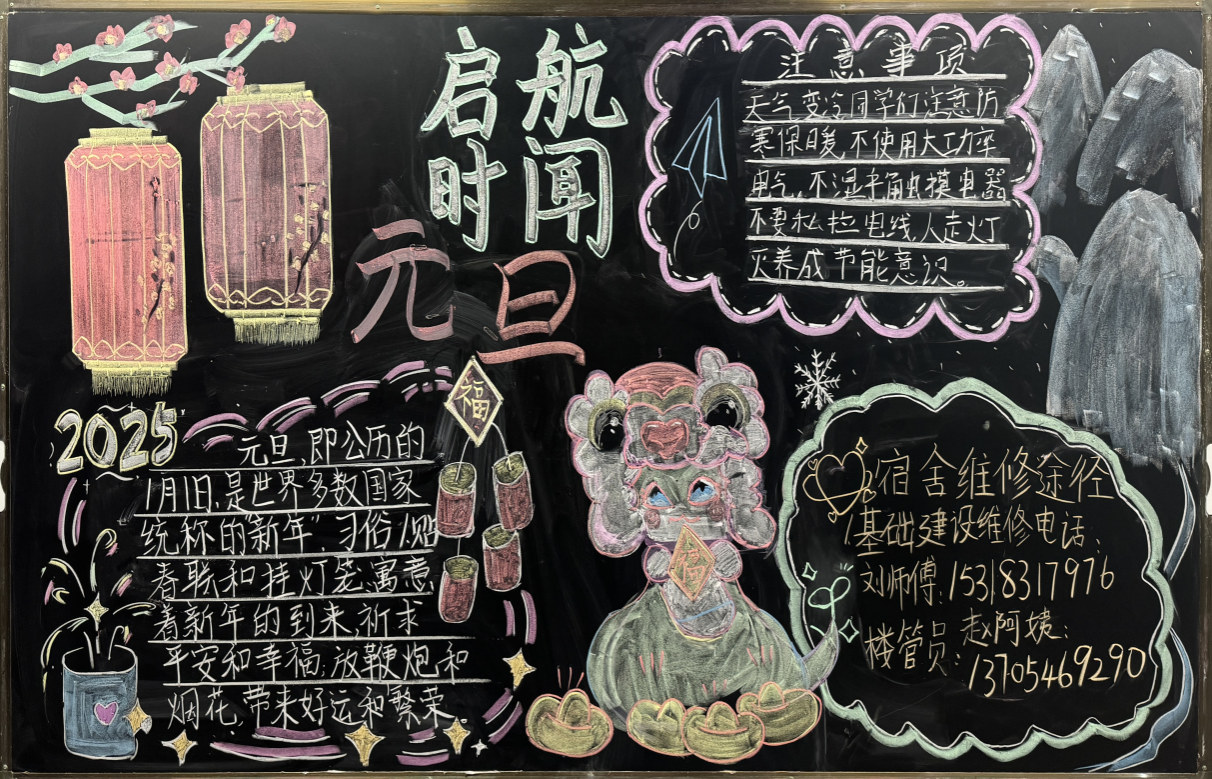 启航
时间
元旦
注意事项
天气变冷同学们注意防
寒保暖,不使用大功率
电气,不湿手触摸电器
不要私拉电线,人走灯
灭养成节能意识。
福
2025
元旦,即公历的
1月1日,是世界多数国家
统称的"新年".习俗:贴
春联和挂灯笼寓意
着新年的到来,祈求
平安和幸福,放鞭炮,和
烟花,带来好运和繁荣。
福
宿舍维修途径
1.基础建设维修电话:
刘师傅:15318317976
楼管员:赵阿姨:
13705469290